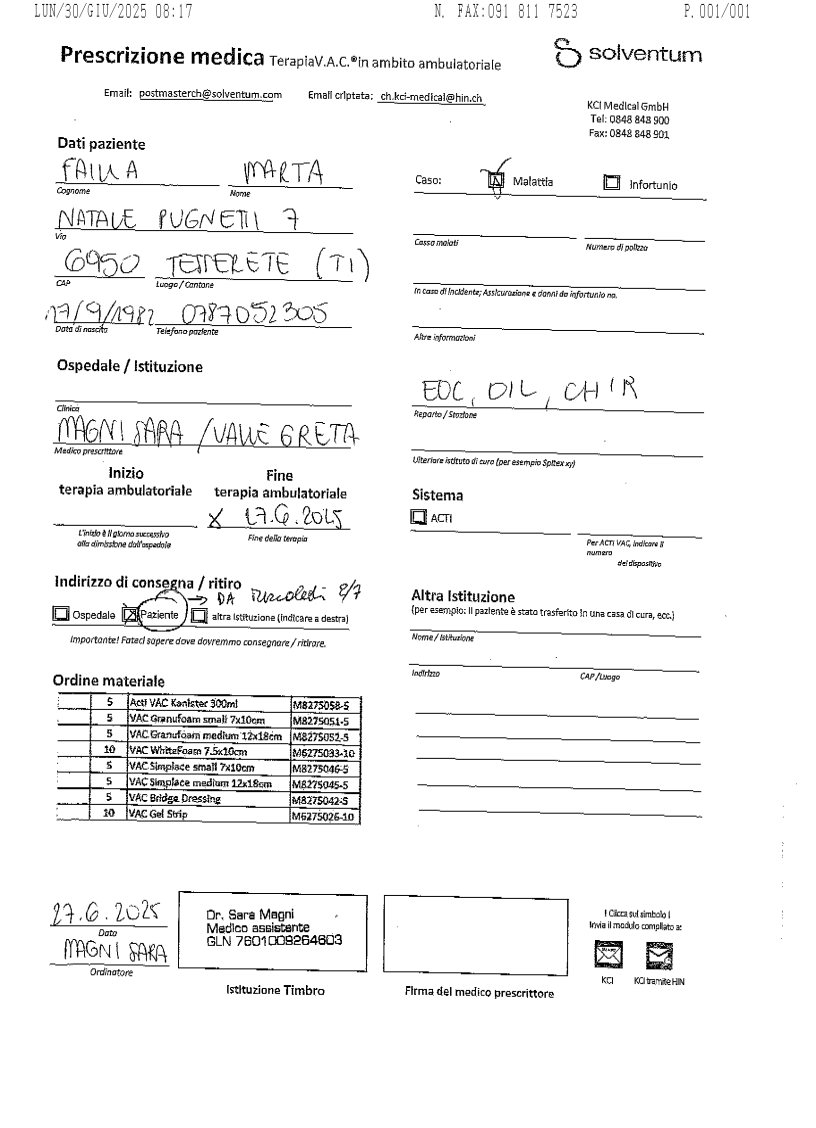 LUN/30/GIU/2025 08:17 N. FAX:091 811 7523 P.001/001
Prescrizione medica TerapiaV.A.C.®in ambito ambulatoriale
solventum
Email: postmasterch@solventum.com Email criptata: ch.kci-medical@hin.ch
KCI Medical GmbH
Tel: 0848 848 900
Fax: 0848 848 901
Dati paziente
FAILLA MARTA
Cognome Nome
Caso: Malattia Infortunio
NATALE PUGNETTI 7
Via
Cassa malati Numero di polizza
6950 TESSERETE (TI)
CAP Luogo / Cantone
In caso di incidente; Assicurazione e danni da infortunio no.
17/9/1982 0787052305
Data di nascita Telefono paziente
Altre informazioni
Ospedale / Istituzione
EOC, OIL, CHIR
Clinica
Reparto / Stazione
MAGNI SARA / VALLE GRETA
Medico prescrittore
Ulteriore istituto di cura (per esempio Spitex xy)
Inizio
terapia ambulatoriale
Fine
terapia ambulatoriale
X 27.6.2025
L'inizio è il giorno successivo
alla dimissione dall'ospedale
Fine della terapia
Sistema
ACTI
Per ACTI VAC, indicare il
numero
del dispositivo
Indirizzo di consegna / ritiro
→ DA Mercoledì 2/7
Ospedale Paziente altra istituzione (indicare a destra)
Importante! Fateci sapere dove dovremmo consegnare / ritirare.
Altra Istituzione
(per esempio: il paziente è stato trasferito in una casa di cura, ecc.)
Nome / Istituzione
Indirizzo CAP/Luogo
Ordine materiale
5 Acti VAC Kanister 300ml M8275058-5
5 VAC Granufoam small 7x10cm M8275051-5
5 VAC Granufoam medium 12x18cm M8275052-5
10 VAC WhiteFoam 7.5x10cm M6275033-10
5 VAC Simplace small 7x10cm M8275046-5
5 VAC Simplace medium 12x18cm M8275045-5
5 VAC Bridge Dressing M8275042-5
10 VAC Gel Strip M6275026-10
27.6.2025
Data
MAGNI SARA
Ordinatore
Dr. Sara Magni
Medico assistente
GLN 7601009264603
Istituzione Timbro
Firma del medico prescrittore
! Clicca sul simbolo !
Invia il modulo compilato a:
KCI KCI tramite HIN